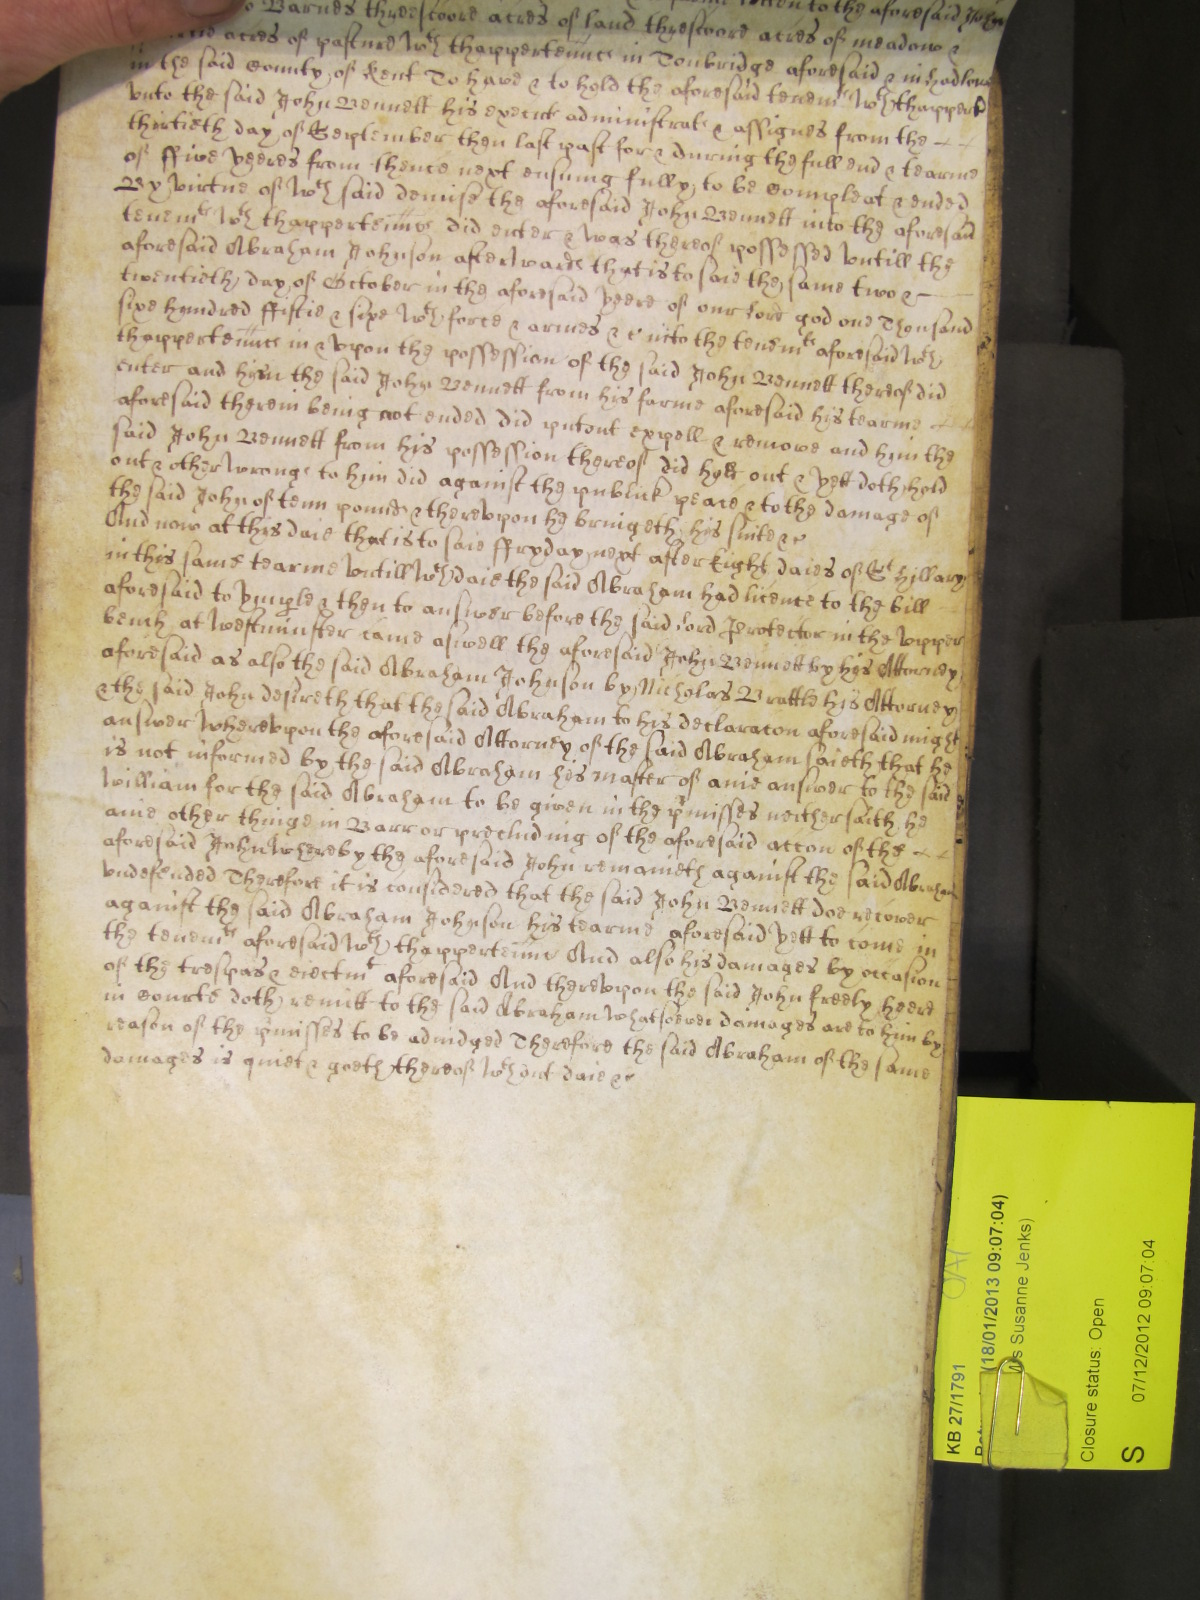 to the aforesaid John
Barnes threescoore acres of land threscoore acres of meadow &
acres of pasture wth thappertennce in Tonbridge aforesaid & in hadlow
in the said County of Kent To have & to hold the aforesaid tenemts wth thappert
vnto the said John Bennett his execut administrat & assignes from the
thirtieth day of September then last past for & during the full end & tearme
of ffive yeeres from thence next ensuing fully to be Compleat & ended
By virtue of wch said demise the aforesaid John Bennett into the aforesaid
tenemts wth thappertennce did enter & was thereof possessed vntill the
aforesaid Abraham Johnson afterwards that is to saie the same two &
twentieth day of October in the aforesaid yeere of our Lord god one Thousand
sixe hundred ffiftie & sixe wth force & armes &c into the tenemts aforesaid wth
thappertennce in & vpon the possession of the said John Bennett thereof did
enter and him the said John Bennett from his farme aforesaid his tearme
aforesaid therein being not ended did putout expell & remove and him the
said John Bennett from his possession thereof did hold out & yett doth hold
out & other wronge to him did against the publick peace & to the damage of
the said John of tenn pounds & therevpon he bringeth his suite &c
And now at this daie that is to saie ffryday next after Eight daies of St Hillary
in this same tearme vntill wch daie the said Abraham had licence to the bill
aforesaid to imparle & then to answer before the said Lord Protector in the vpper
bench at westminster came aswell the aforesaid John Bennett by his Attorney
aforesaid as also the said Abraham Johnson by Nicholas Brattle his Attorney
& the said John desireth that the said Abraham to his declaracon aforesaid might
answer wherevpon the aforesaid Attorney of the said Abraham saieth that he
is not informed by the said Abraham his master of anie answer to the said
william for the said Abraham to be given in the pmisses neither saith he
anie other thinge in Barr or precluding of the aforesaid accon of the
aforesaid John whereby the aforesaid John remaineth against the said Abraham
vndefended Therefore it is considered that the said John Bennett doe recover
against the said Abraham Johnson his tearme aforesaid yett to come in
the tenemts aforesaid wth thappertennce And also his damages by occasion
of the trespas & eiectmt aforesaid And therevpon the said John freely heere
in Courte doth remitt to the said Abraham whatsoever damages are to him by
reason of the pmisses to be adiudged Therefore the said Abraham of the same
damages is quiet & goeth thereof wthout daie &c
KB 27/1791
(18/01/2013 09:07:04)
s Susanne Jenks)
Closure status: Open
S
07/12/2012 09:07:04